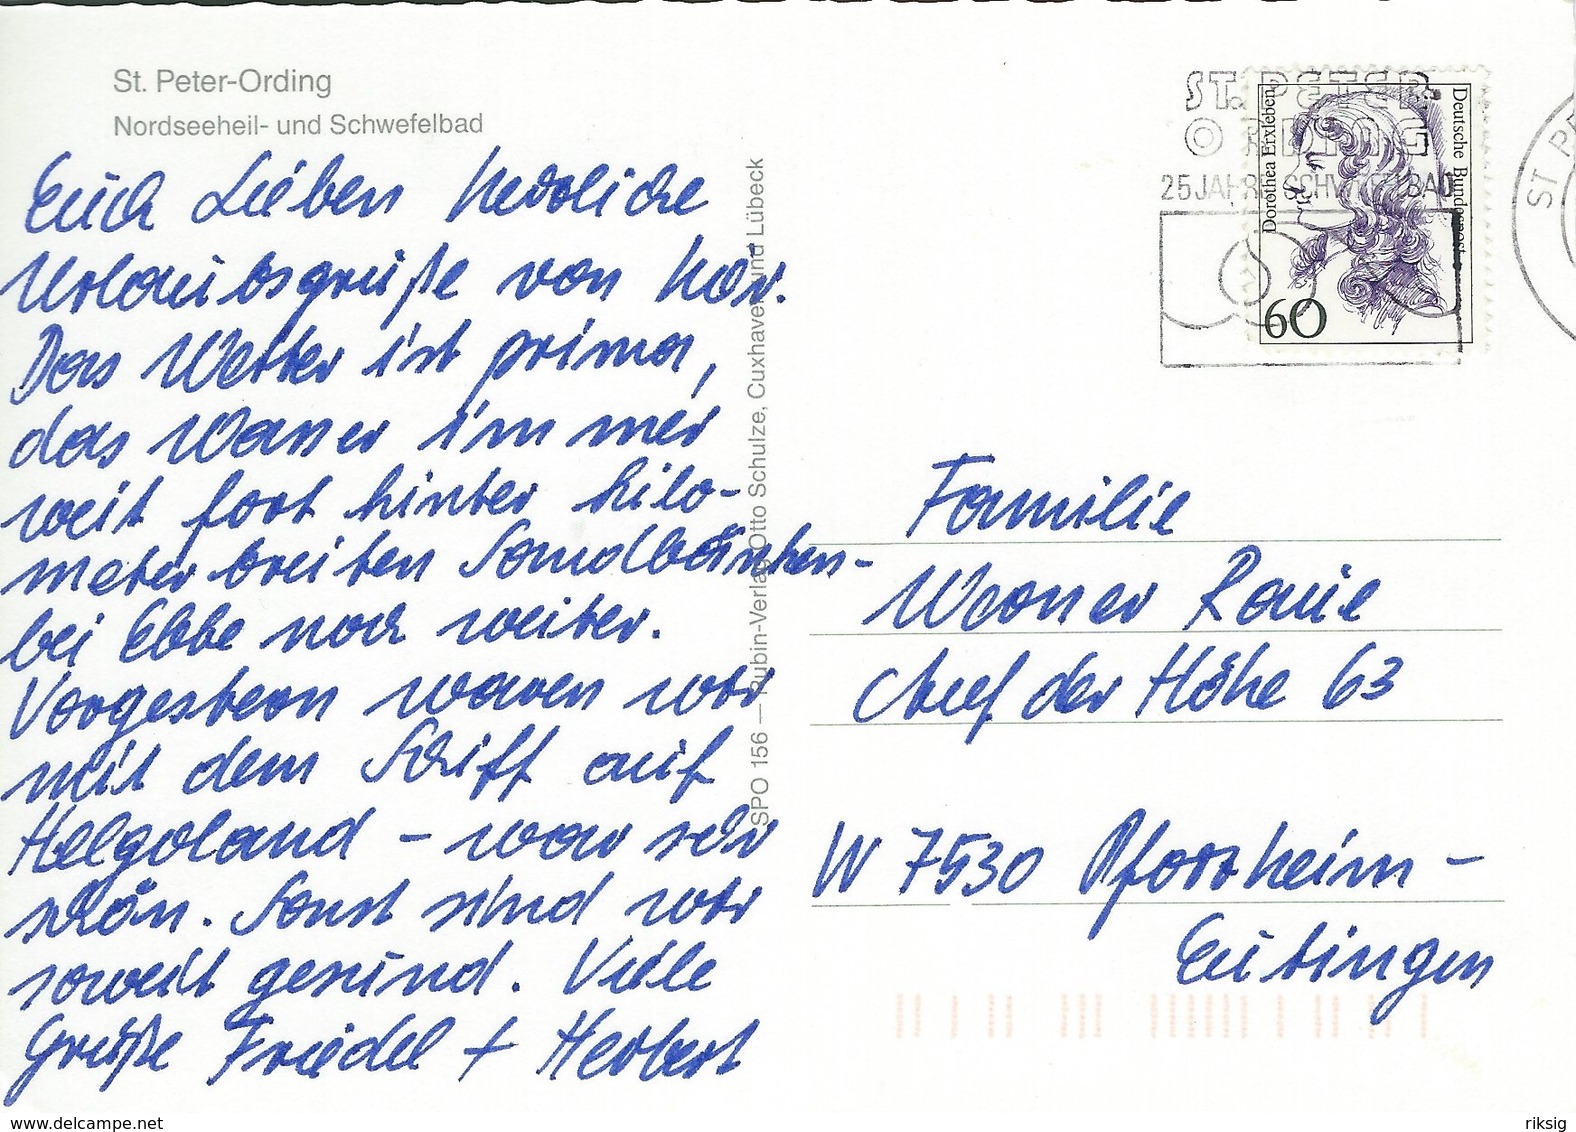 St. Peter-Ording
Nordseeheil- und Schwefelbad
Euch Lieben herzliche
Urlaubsgrüße von hier.
Das Wetter ist prima,
das Wasser immer
weit fort hinter kilo-
meter breiten Sandbänken -
bei Ebbe noch weiter.
Vorgestern waren wir
mit dem Schiff auf
Helgoland - war sehr
schön. Sonst sind wir
soweit gesund. Viele
Grüße Friedel + Herbert
SPO 156 — Rubin-Verlag Otto Schulze, Cuxhaven und Lübeck
ST. PETER
ORDING
25 JAHRE SCHWEFELBAD
Dorothea Erxleben
Deutsche Bundespost
60
ST. PE
Familie
Werner Raue
Auf der Höhe 63
W 7530 Pforzheim -
Eutingen
www.delcampe.net
riksig